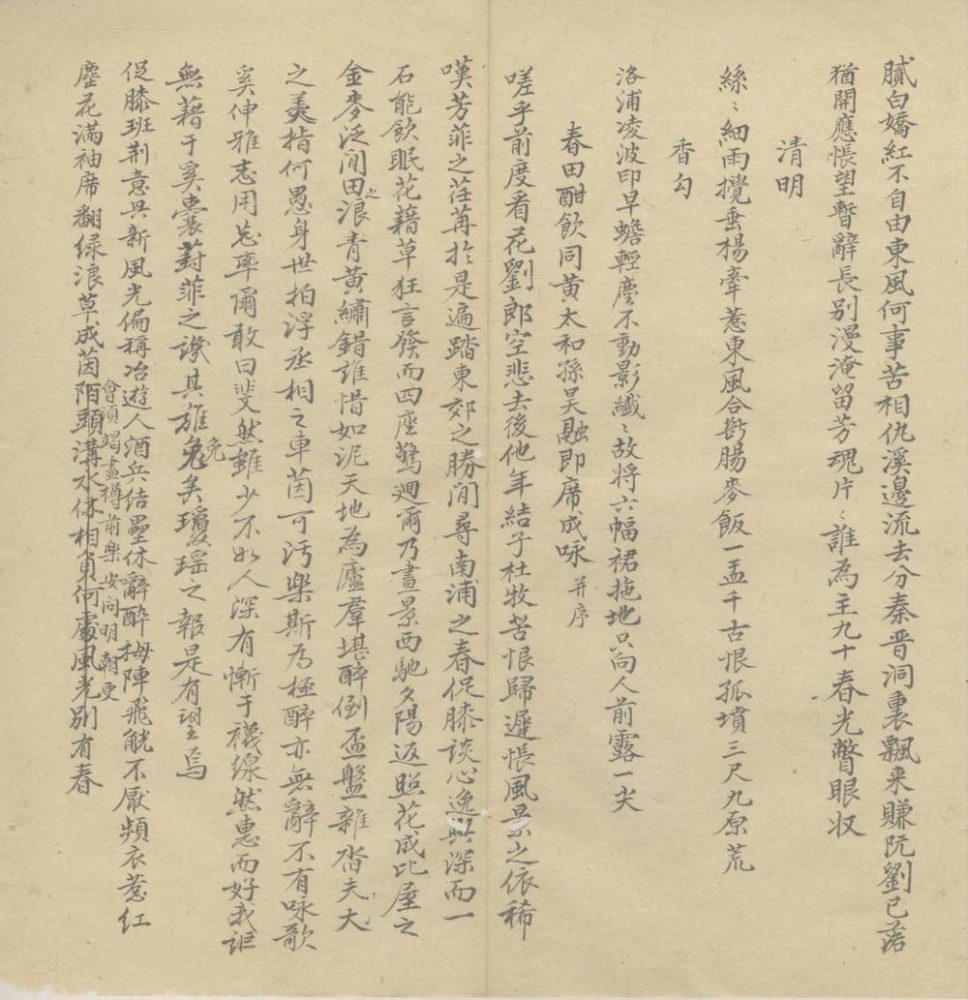 膩白嬌紅不自由東風何事苦相仇溪邊流去分秦晋洞裏飄来賺阮劉已落
猶開應悵望暫辭長别漫淹留芳魂片〻誰為主九十春光瞥眼収
清明
絲〻細雨攪垂楊牽惹東風合斷腸麥飯一盂千古恨孤墳三尺九原荒
香勾
洛浦凌波印早蟾輕塵不動影纖〻故將六幅裙拖地只向人前露一尖
春田酣飲同黄太和孫吴融即席成咏 并序
嗟乎前度看花劉郎空悲去後他年結子杜牧苦恨歸遲悵風景之依稀
嘆芳菲之荏苒於是遍踏東郊之勝閒尋南浦之春促膝談心逸興深而一
石能飲眠花藉草狂言發而四座驚迴爾乃晝景西馳夕陽返照花成比屋之
金麥泛閒田之浪青黄繡錯誰惜如泥天地為廬羣堪醉倒盃盤雜沓夫大
之美指何愚身世拍浮丞相之車茵可污樂斯為極醉亦無辭不有咏歌
奚伸雅志用忘率爾敢曰斐然雖少不如人深有慚于襪線然惠而好我詎
無藉于奚囊葑菲之譏其雖免免矣瓊瑶之報是有望焉
促膝班荆意具新風光偏稱冶遊人酒兵结壘休辭醉梅陣飛觥不厭頻衣惹红
塵花满袖席翻绿浪草成茵陌頭溝水休相負何處風光别有春
會須竭盡樽前樂安问明朝更